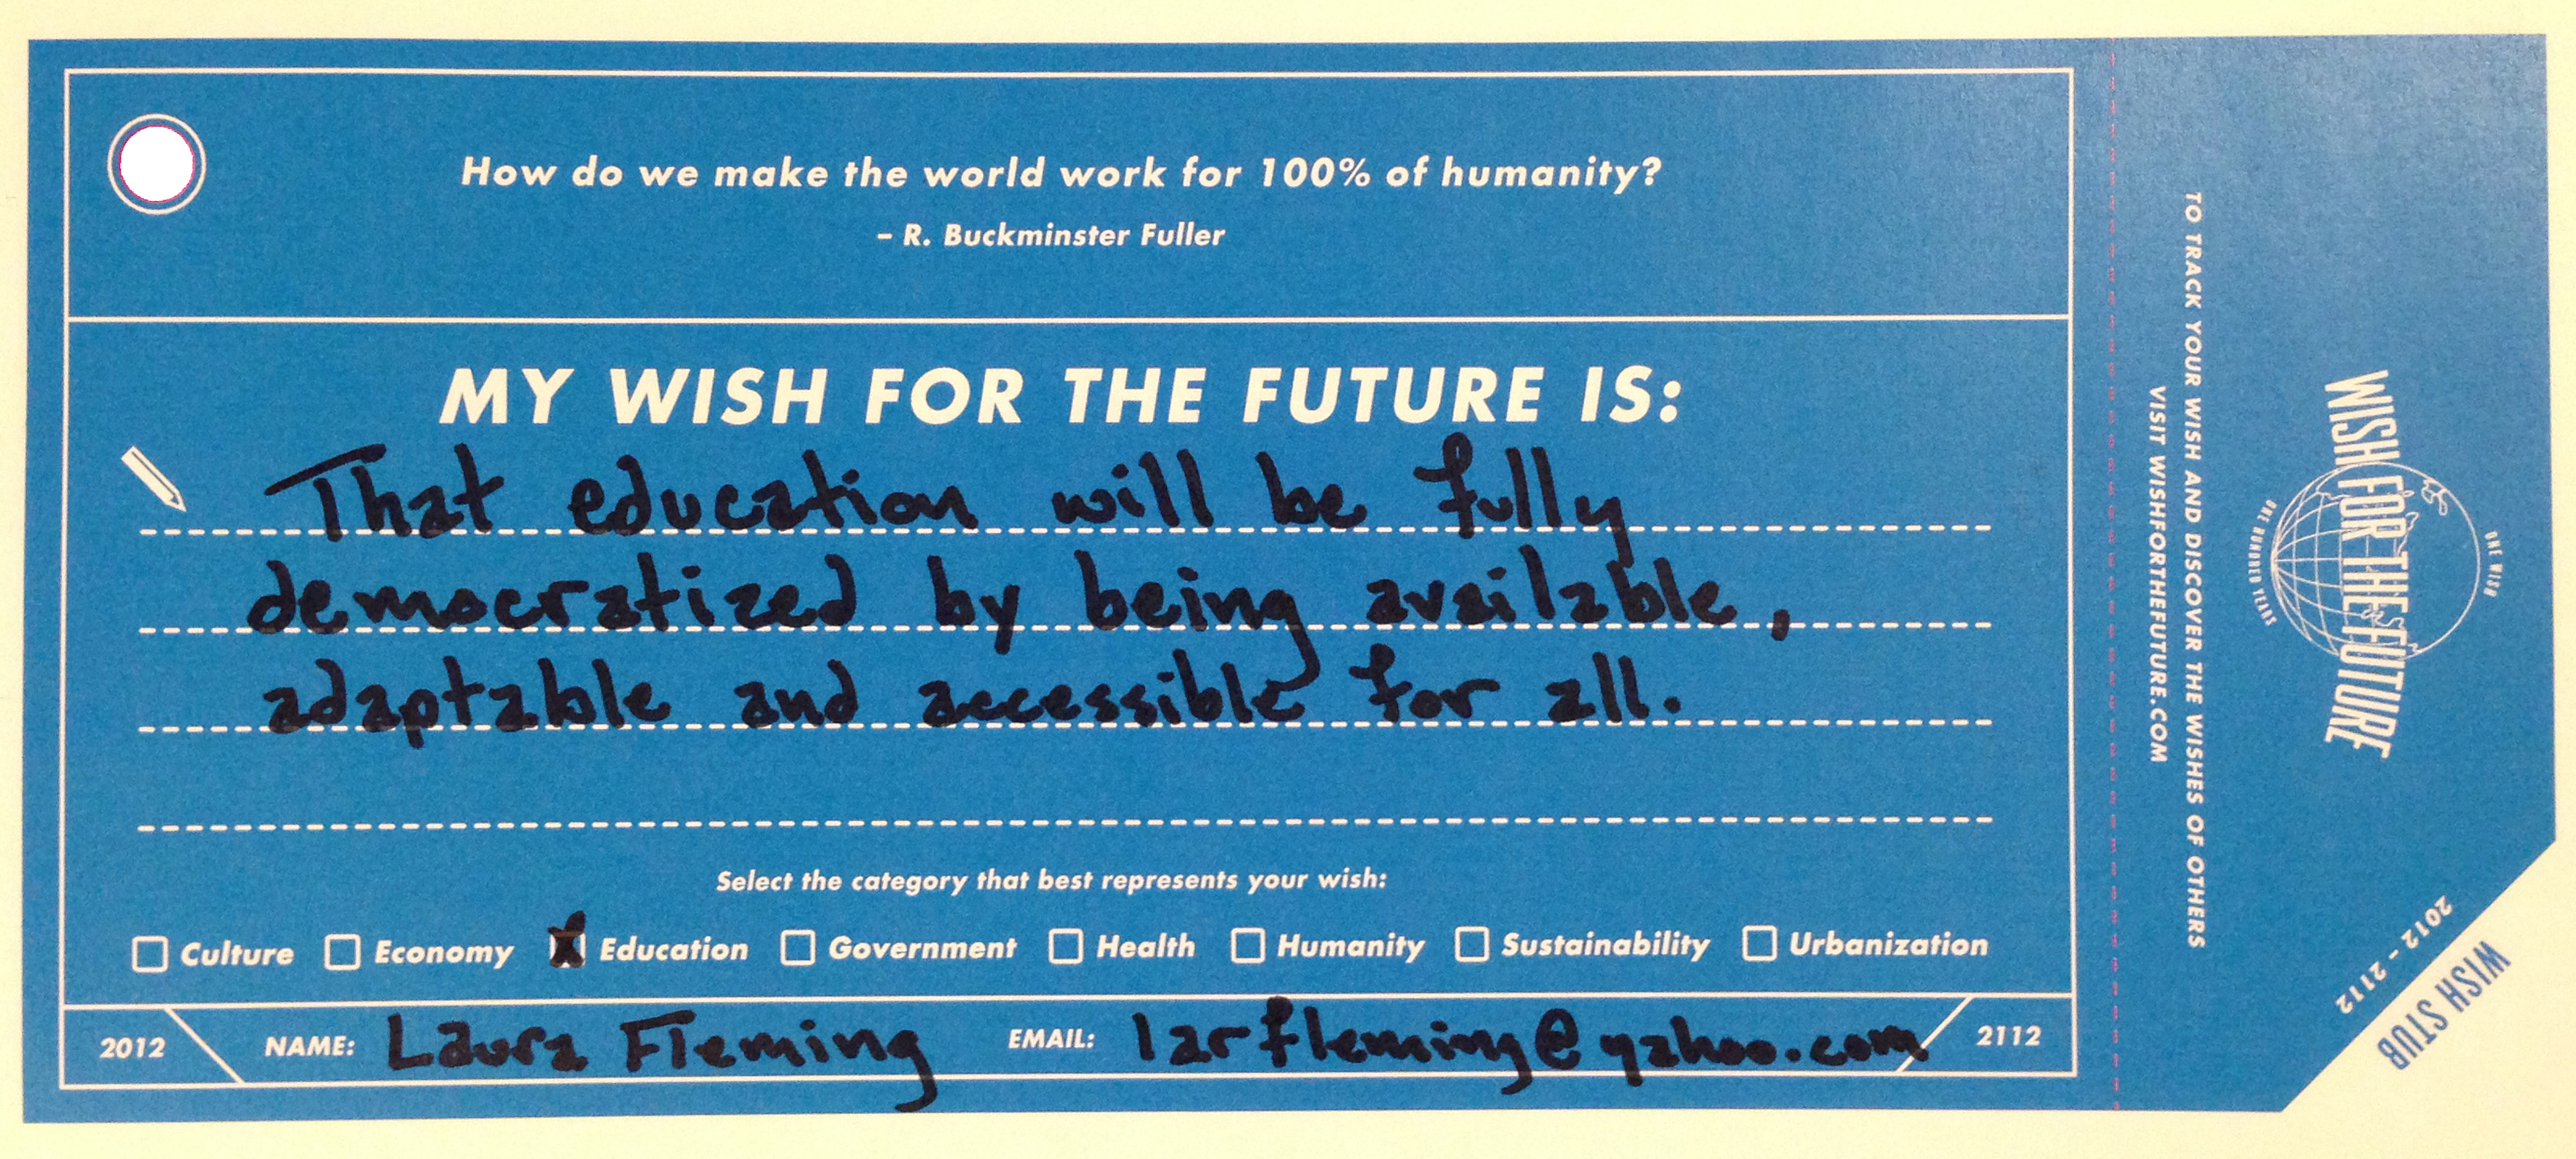 How do we make the world work for 100% of humanity?
– R. Buckminster Fuller
MY WISH FOR THE FUTURE IS:
That education will be fully
democratized by being available,
adaptable and accessible for all.
Select the category that best represents your wish:
Culture Economy Education Government Health Humanity Sustainability Urbanization
2012 NAME: Laura Fleming EMAIL: larfleming@yahoo.com 2112
TO TRACK YOUR WISH AND DISCOVER THE WISHES OF OTHERS
VISIT WISHFORTHEFUTURE.COM
ONE WISH
WISH FOR THE FUTURE
ONE HUNDRED YEARS
2012 – 2112
WISH STUB